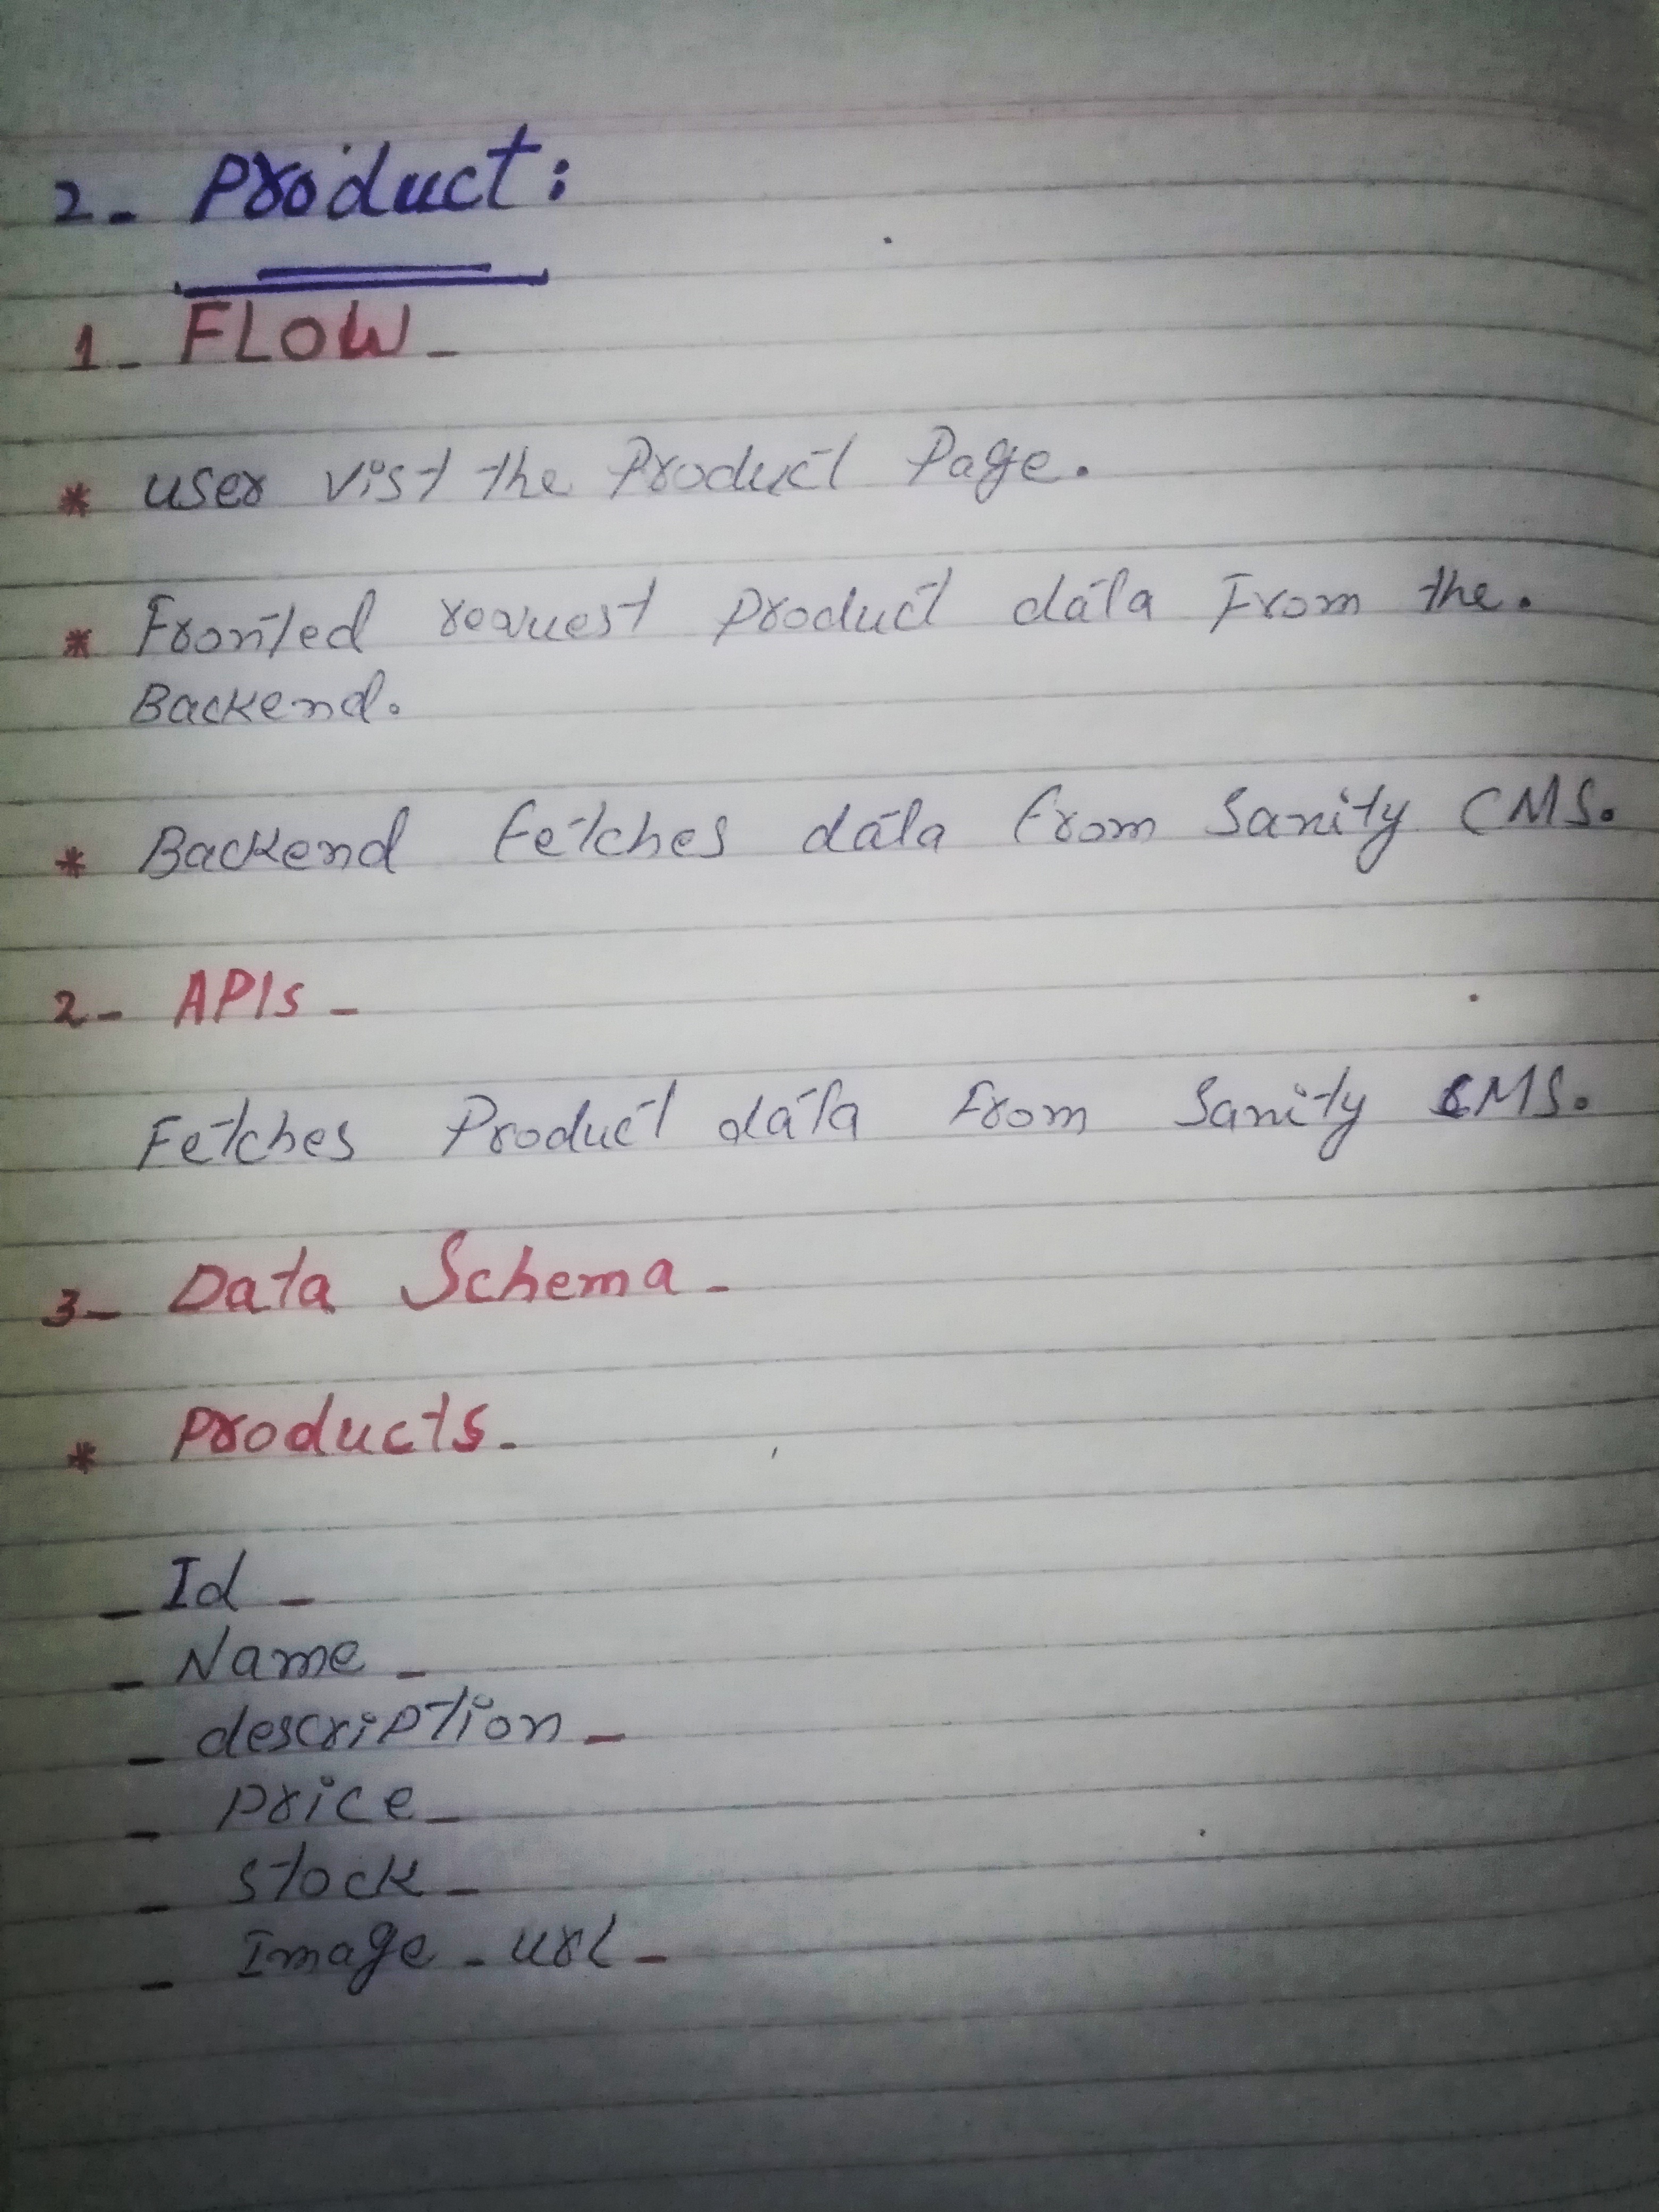 2- Product:
1- FLOW -
* user vist the Product Page.
* Fronted request Product data From the.
Backend.
* Backend Fetches data from Sanity CMS.
2- APIs -
Fetches Product data From Sanity CMS.
3- Data Schema -
* Products -
- Id -
- Name -
- description -
- price -
- stock -
- Image - url -